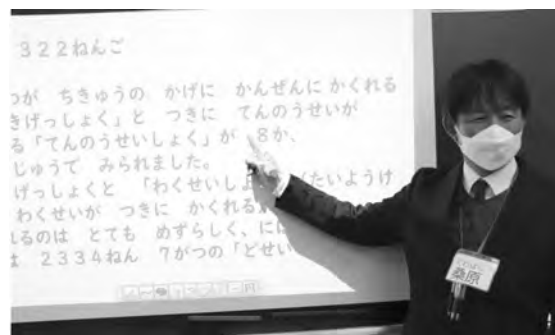 322ねんご
つが ちきゅうの かげに かんぜんに かくれる
きげっしょく」と つきに てんのうせいが
る「てんのうせいしょく」が 8か、
じゅうで みられました。
げっしょくと 「わくせいし たいようけ
わくせいが つきに かくれる
れるのは とても めずらしく、に
は 2334ねん 7がつの「どせい
桑原